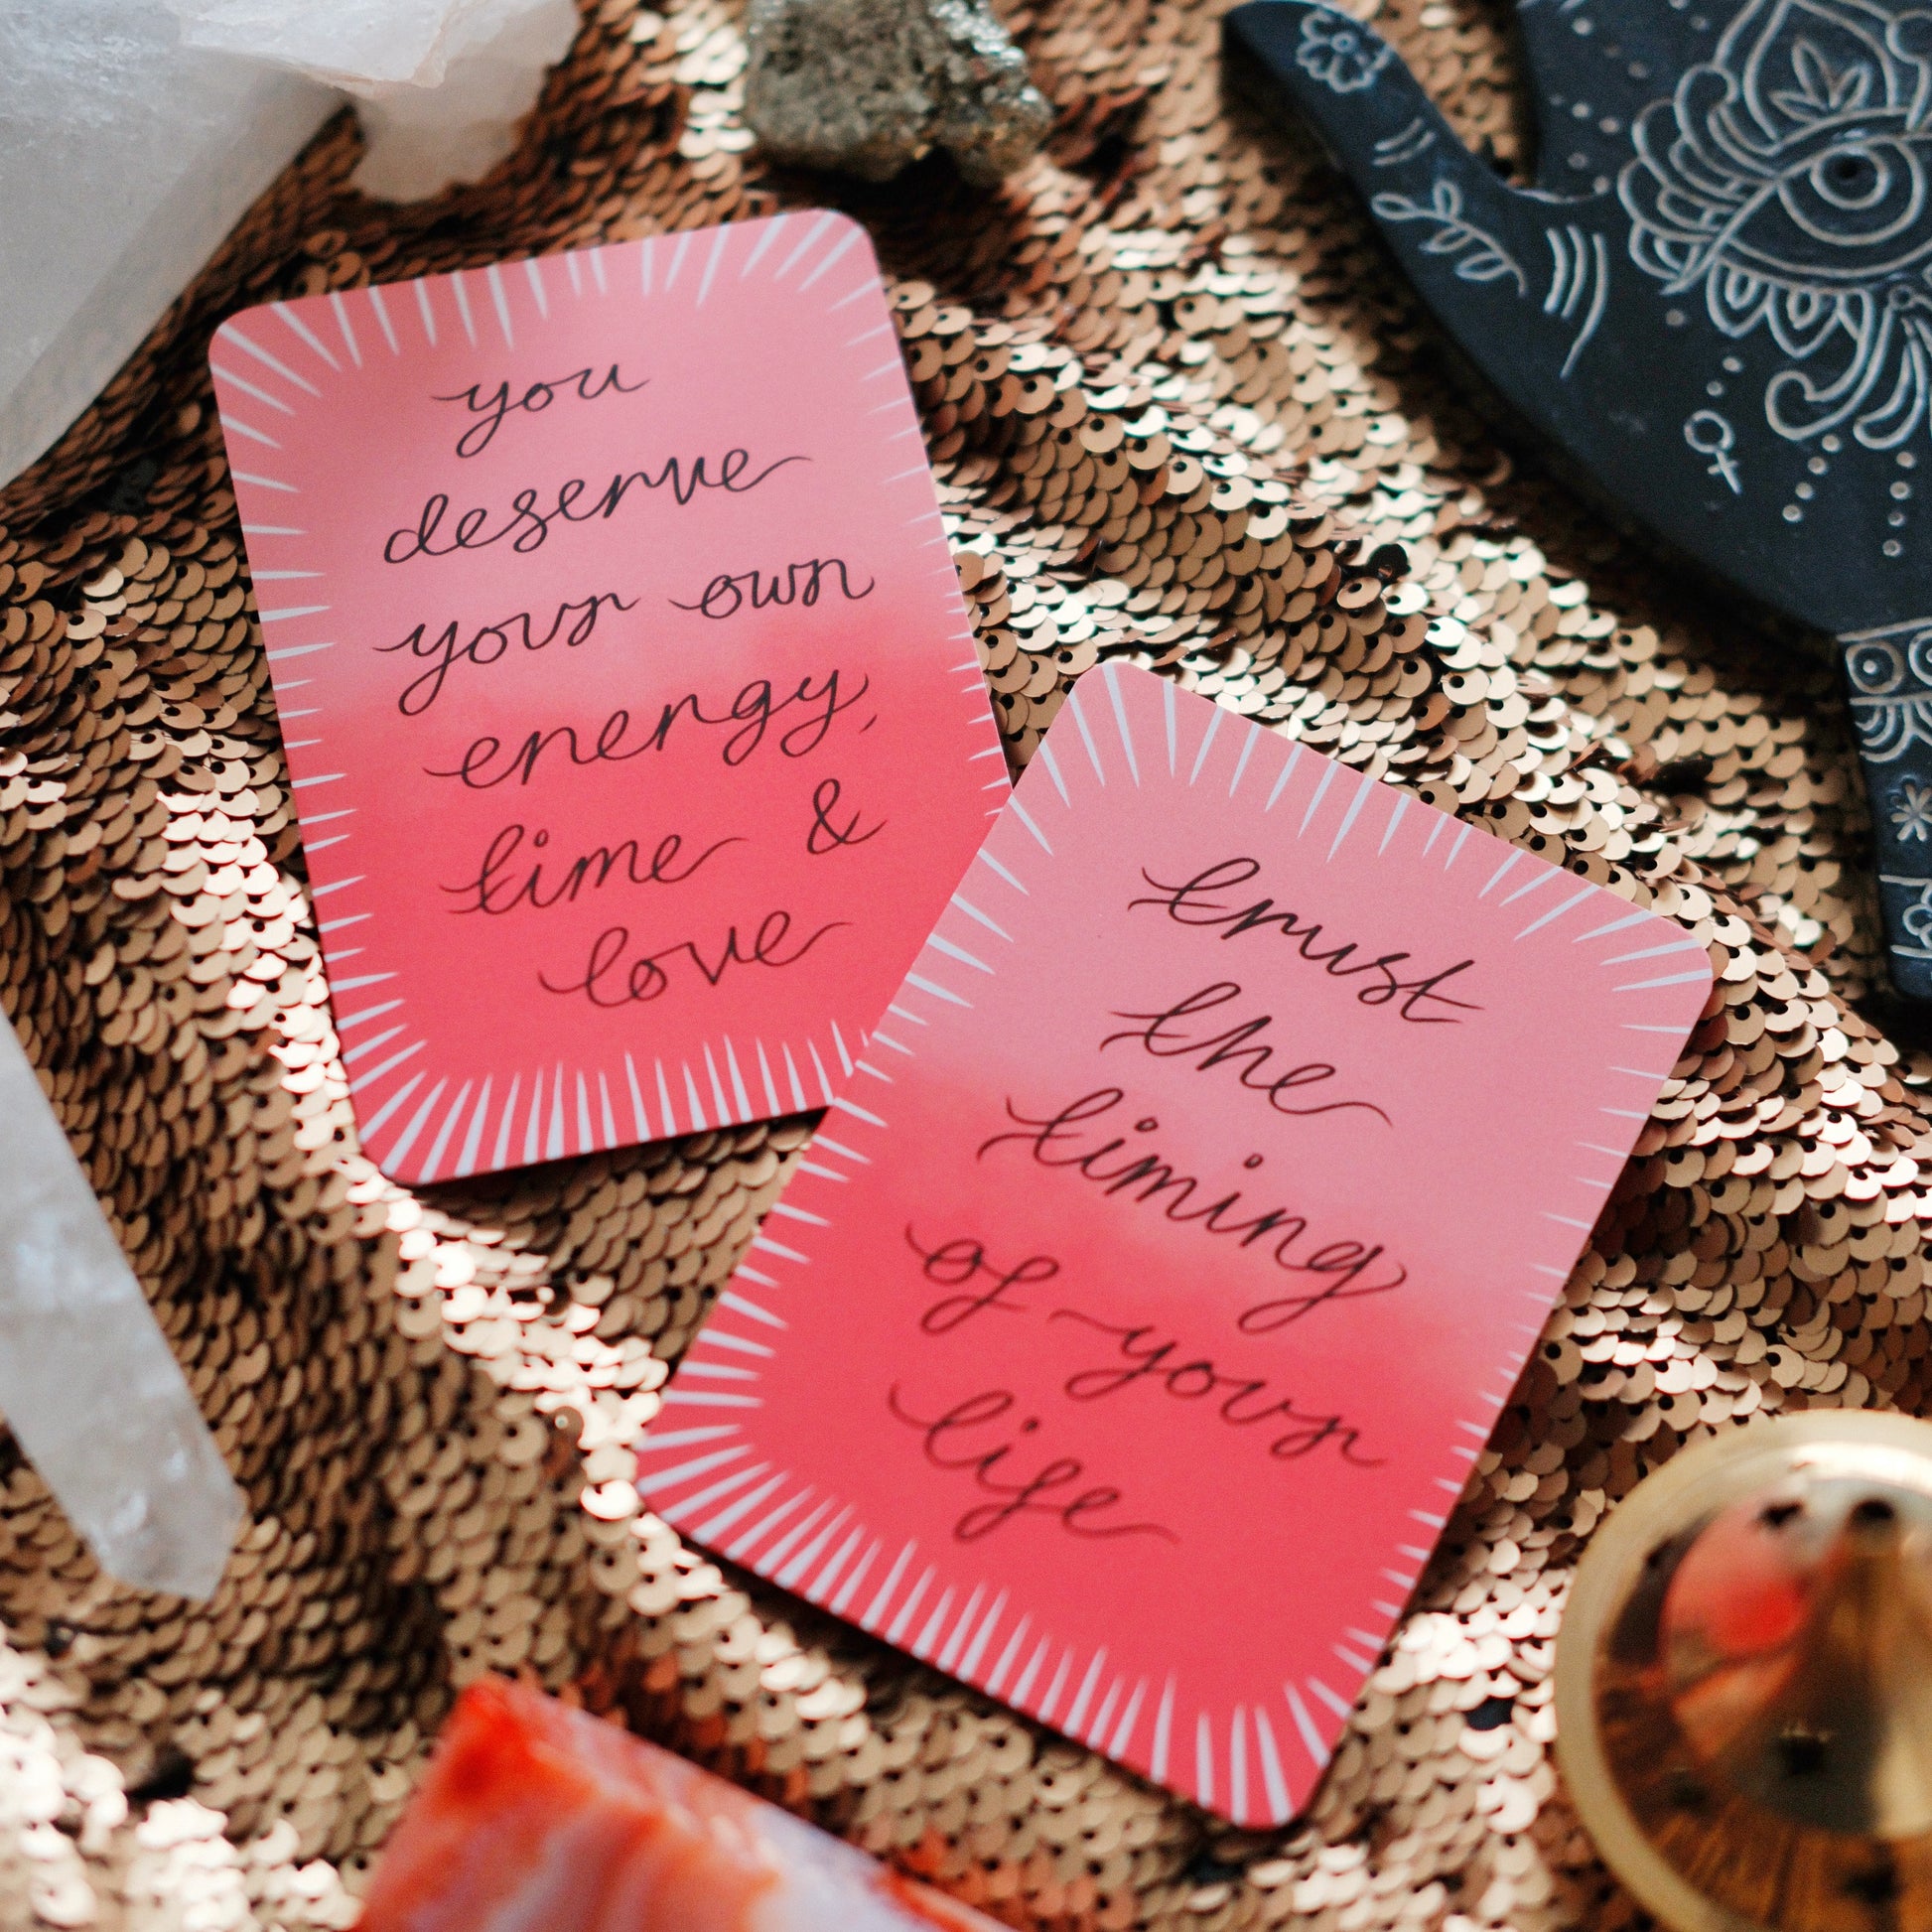 you
deserve
your own
energy,
time &
love
trust
the
timing
of your
life